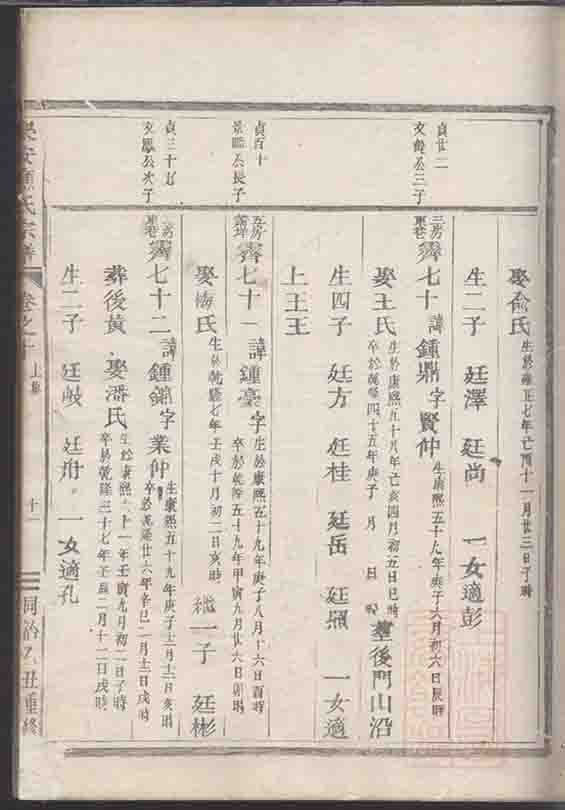 娶俞氏 生於雍正七年己酉十一月廿三日子時
生二子 廷澤 廷尚 一女適彭
貞廿二
三房 東巷 霽七十 諱鍾鼎字賢仲 生康熙五十九年庚子六月初六日辰時
娶王氏 生於康熙五十八年己亥四月初五日巳時 卒於乾隆四十五年庚子 月 日 時 葬後門山沿
生四子 廷方 廷桂 廷岳 廷鼎 一女適
上王王
貞百十
景 公長子
五房 霽七十一 諱鍾臺字 生於康熙五十九年庚子八月十六日酉時 卒於乾隆五十九年甲寅九月廿六日卯時
娶 氏 生於乾隆七年壬戌十月初二日亥時 繼一子 廷彬
貞三十五
文 公次子
房 東巷 霽七十二 諱鍾 字業仲 生康熙五十九年庚子十二月十二日亥時 卒於乾隆廿六年辛巳二月十三日戌時
葬後黃 娶潘氏 生於康熙六十一年壬寅九月初二日子時 卒於乾隆三十七年壬辰二月十二日戌時
生二子 廷 廷 一女適孔
安 氏宗譜
卷之十 上集
十一
同治乙丑重修